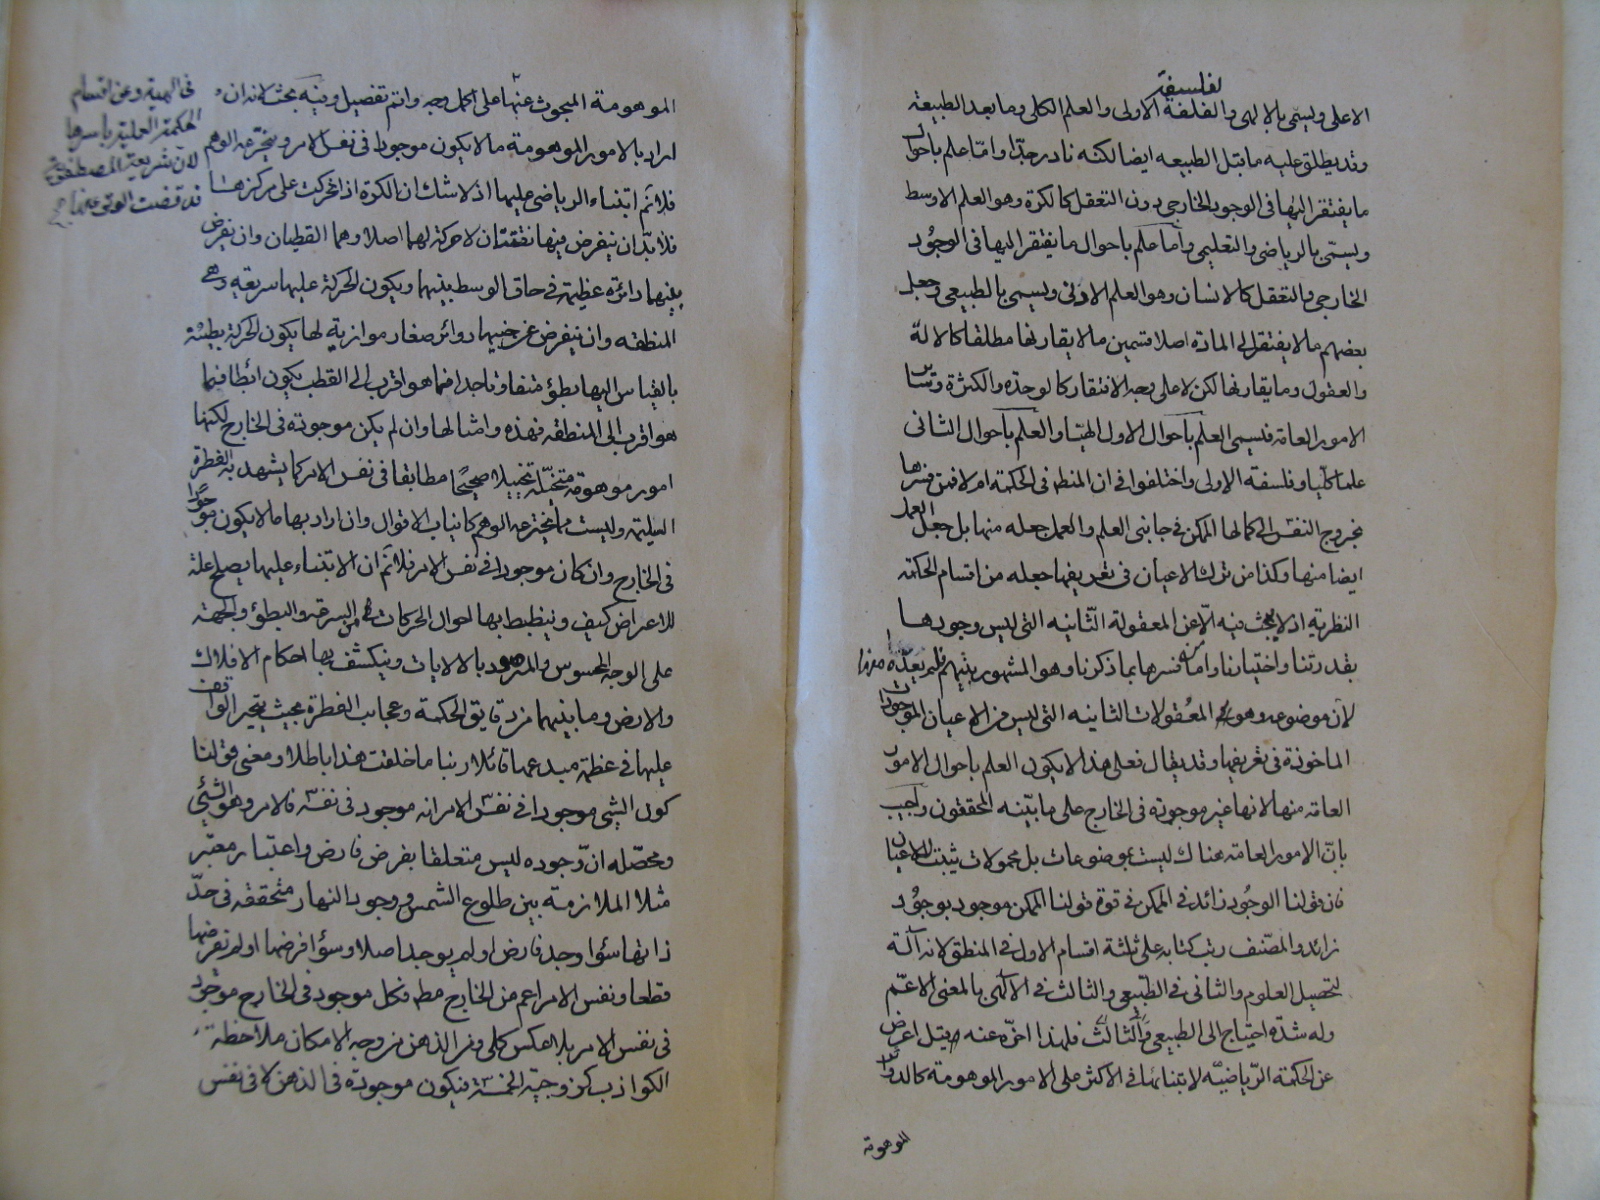 لفلسفة
الاعلى ويسمى بالالهى والفلفة الاولى والعلم الكلى وما بعد الطبيعة
وقد يطلق عليه ما قبل الطبيعه ايضا لكنه نادر جدا واما علم باحوال
ما يفتقر اليها فى الوجود الخارجى دون التعقل كالكرة وهو العلم الاوسط
ويسمى بالرياضى والتعليمى واما علم باحوال ما يفتقر اليها فى الوجود
الخارجى والتعقل كالانسان وهو العلم الادنى ويسمى بالطبيعى وجعل
بعضهم ما لا يفتقر الى المادة اصلا قسمين ما لا يقارنها مطلقا كالاله
والعقول وما يقارنها لكن لا على وجه الافتقار كالوحدة والكثرة وسائر
الامور العامة فيسمى العلم باحوال الاول الهيا والعلم باحوال الثانى
علما كليا وفلسفة الاولى واختلفوا فى ان المنطق فى الحكمة ام لا فمن فسرها
بخروج النفس الى كمالها الممكن فى جانبى العلم والعمل جعله منها بل جعل العمل
ايضا منها وكذا من ترك الاعيان فى تعريفها جعله من اقسام الحكمة
النظرية اذ لا يبحث فيه الا عن المعقولة الثانيه التى ليس وجودها
بقدرتنا واختيارنا واما من فسرها بما ذكرنا وهو المشهور بينهم فلم يعده منها
لان موضوعه وهو المعقولات الثانيه التى ليس من الاعيان الموجودات
الماخوذة فى تعريفها وقد يقال فعلى هذا لا يكون العلم باحوال الامور
العامة منها لانها غير موجودة فى الخارج على ما بينه المحققون واجيب
بان الامور العامة هناك ليست بموضوعات بل محمولات تثبت للاعيان
فان قولنا الوجود زائد فى الممكن فى قوة قولنا الممكن موجود بوجود
زائد والمصنف رتب كتابه على ثلثة اقسام الاول فى المنطق لانه آلة
لتحصيل العلوم والثانى فى الطبيعى والثالث فى الآلهى بالمعنى الاعم
وله شدة احتياج الى الطبيعى والثالث فلهذا اخره عنه قيل اعرض
عن الحكمة الرياضية لابتنائها فى الاكثر على الامور الموهومة كالدوائر
الموهومة
الموهومة المبحوث عنها على اكمل وجه واتم تفصيل وفيه بحث لانه ان
اراد بالامور الموهومة ما لا يكون موجودا فى نفس الامر ويخترعه الوهم
فلا نم ابتناء الرياضى عليها اذ لا شك ان الكرة اذا تحركت على مركزها
فلا بد ان يفرض فيها نقطتان لا حركة لهما اصلا وهما القطبان وان يفرض
بينهما دائرة عظيمة فى حاق الوسط بينهما ويكون الحركة عليها سريعه وهى
المنطقه وان يفرض عن جنبيها دوائر صغار موازية لها يكون الحركة بطيئة
بالقياس اليها بطؤ متفاوتا جدا فما هو اقرب الى القطب يكون ابطا فما
هو اقرب الى المنطقه فهذه وامثالها وان لم يكن موجودة فى الخارج لكنها
امور موهومة متخيلة تخيلا صحيحا مطابقا فى نفس الامر كما يشهد به الفطرة
السليمة وليست مما يخترعه الوهم كانياب الاقوال وان اراد بها ما لا يكون موجودا
فى الخارج وان كان موجودا فى نفس الامر فلا نم ان الابتناء عليها يصلح علة
للاعراض كيف وينضبط بها احوال الحركات من السرعة والبطؤ والجهة
على الوجه المحسوس والمرصود بالالات وينكشف بها احكام الافلاك
والارض وما بينهما من دقايق الحكمة وعجايب الفطرة بحيث يتحير الواقف
عليها فى عظمة مبدعها قائلا ربنا ما خلقت هذا باطلا ومعنى قولنا
كون الشئ موجودا فى نفس الامر انه موجود فى نفسه فالامر هو الشئ
ومحصله ان وجوده ليس متعلقا بفرض فارض واعتبار معتبر
مثلا الملازمة بين طلوع الشمس ووجود النهار متحققه فى حد
ذاتها سؤا وجد فارض او لم يوجد اصلا وسؤا فرضها او لم يفرضها
قطعا ونفس الامر اعم من الخارج مط فكل موجود فى الخارج موجود
فى نفس الامر بلا عكس كلى ومن الذهن من وجه لامكان ملاحظة
الكواذب كزوجية الخمسة فيكون موجودة فى الذهن لا فى نفس
فى الهيئة وعن اقسام
الحكمة العملية باسرها
لان شريعة المصطفوية
قد قضت الوتر عنها